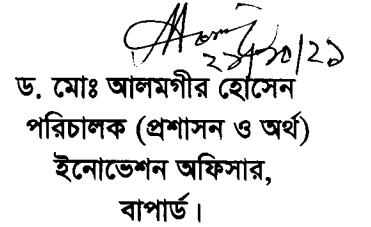 ড. মোঃ আলমগীর হোসেন
পরিচালক (প্রশাসন ও অর্থ)
ইনোভেশন অফিসার,
বাপার্ড।